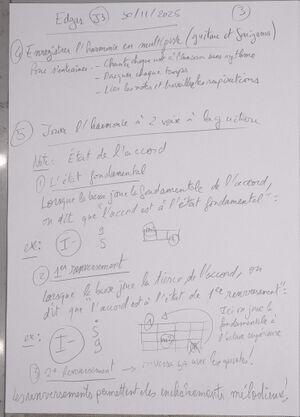 Edgar J3 30/11/2025 3
4 Enregistrer l'harmonie en multipiste (guitare et
Pour s'entraîner - Chanter chaque note à l'unisson sans rythme
- chaque temps
- Lier les notes et travailler les respirations
5 Jouer l'harmonie à 2 voix à la guitare
Note: État de l'accord
1 L'état fondamental
Lorsque la basse joue la fondamentale de l'accord,
on dit que "l'accord est à l'état fondamental":
ex: I-
5
2 1er renversement
Lorsque la basse joue la tierce de l'accord, on
dit que "l'accord est à l'état de 1er renversement":
Ici on joue la
fondamentale à
l'octave supérieure
ex: I-
3 2e Renversement
Les renversements permettent des enchaînements mélodieux!